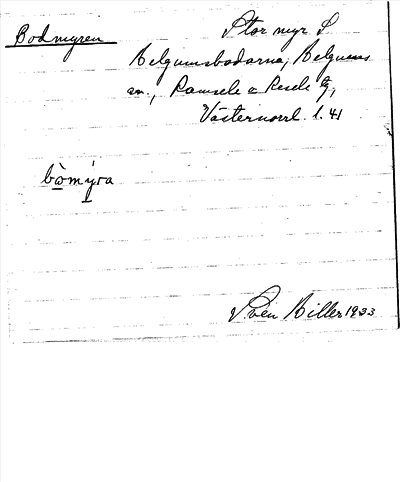 Bodmyren
Stor myr S
Helgumsbodarna, Helgums
sn., Ramsele o Resele tg,
Västernorrl. l. 41
bòmýra
Sven Hiller 1933